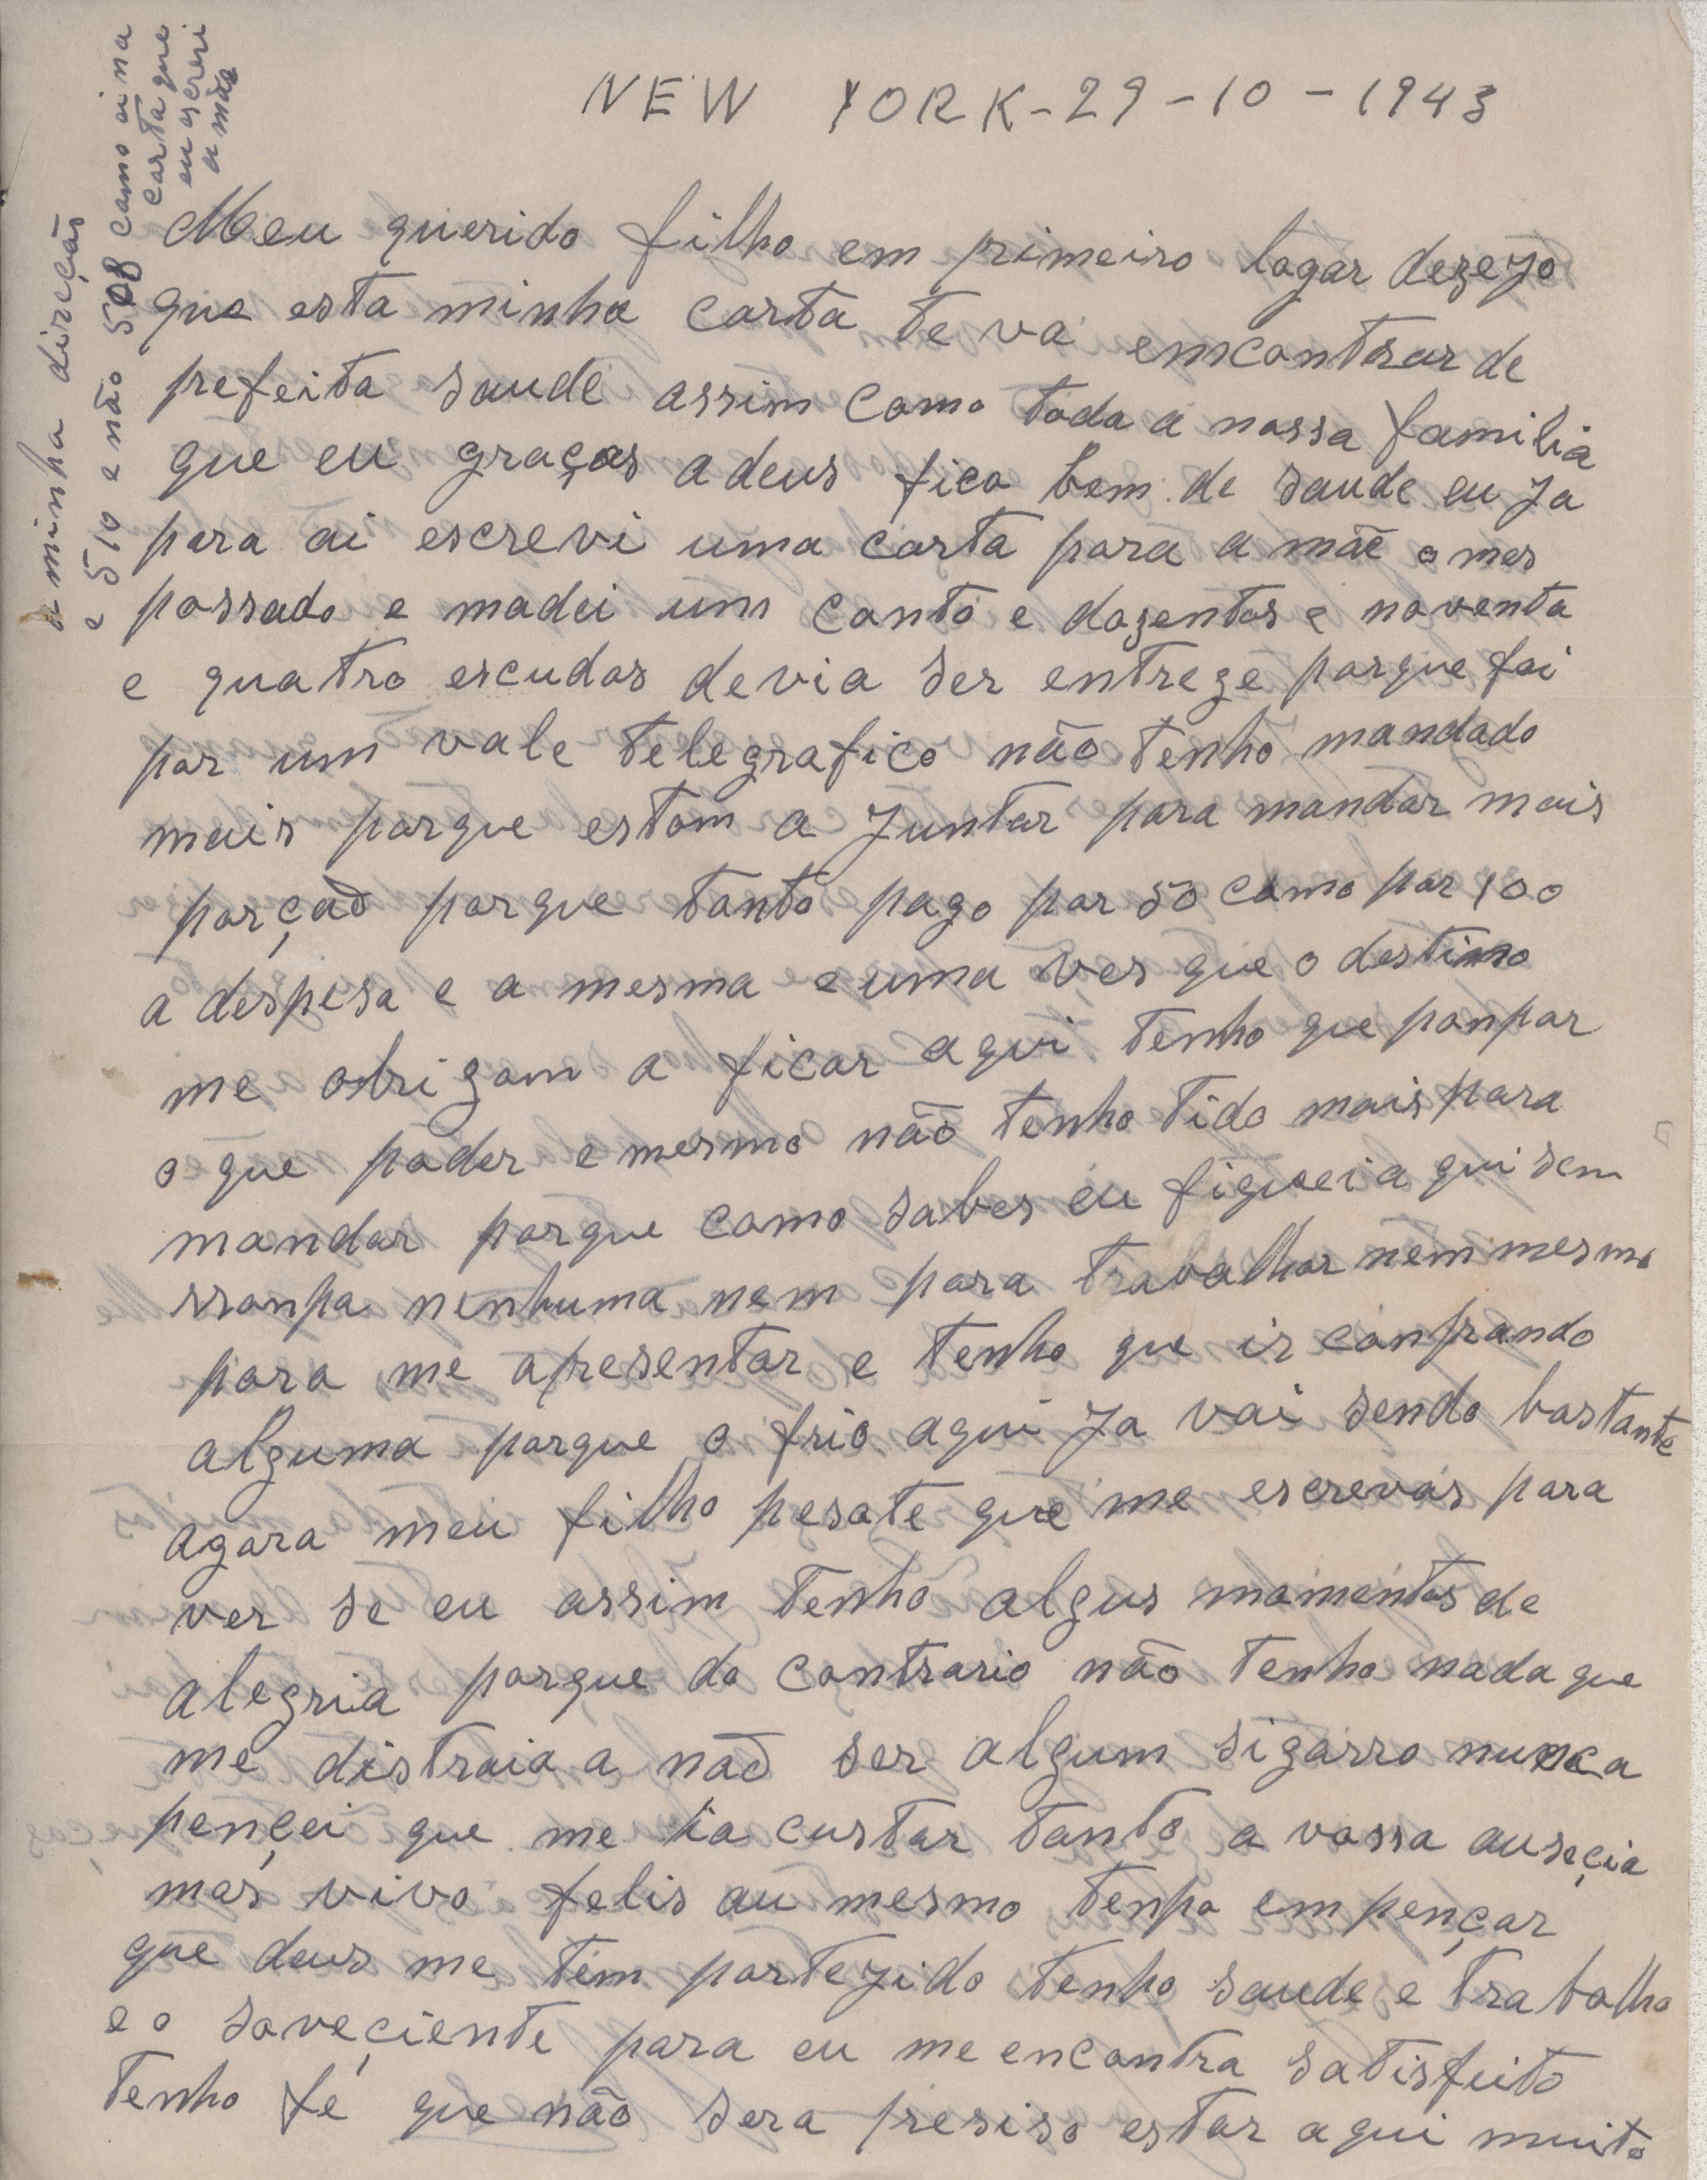 NEW YORK-29-10-1943
Meu querido filho em primeiro logar dezejo
que esta minha carta te va emcontrar de
prefeita saude assim como toda a nossa familia
que eu graças a deus fico bem de saude eu ja
para ai escrevi uma carta para a mãe o mes
possado e madei um conto e dozentos e noventa
e quatro escudos devia ser entrege porque foi
por um vale telegrafico não tenho mandado
mais porque estom a juntar para mandar mais
porção porque tonto pago por 50 como por 100
a despesa e a mesma e uma ves que o destino
me obrigam a ficar aqui tenho que ponpar
o que poder e mesmo não tenho tido mais para
mandar porque como sabes eu fiquei aqui sem
rronpa nenhuma nem para trabalhar nem mesmo
para me apresentar e tenho que ir conprando
alguma porque o frio aqui ja vai sendo bastante
agora meu filho pesote que me escrevas para
ver se eu assim tenho algus momentos de
alegria porque do contrario não tenho nada que
me distraia a não ser algum sigarro nunca
pençei que me ia custar tanto a vossa auseçia
mas vivo felis au mesmo tenpo em pençar
que deus me tem portejido tenho saude e trabolho
e o soveçiente para eu me encontra satisfeito
tenho fé que não sera presiso estar aqui muito
a minha direcção
e 510 e não 508 como ai na
carta que
eu escrevi
a mãe